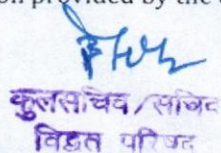 on provided by the
कुलसचिव/सचिव
विद्वत परिषद